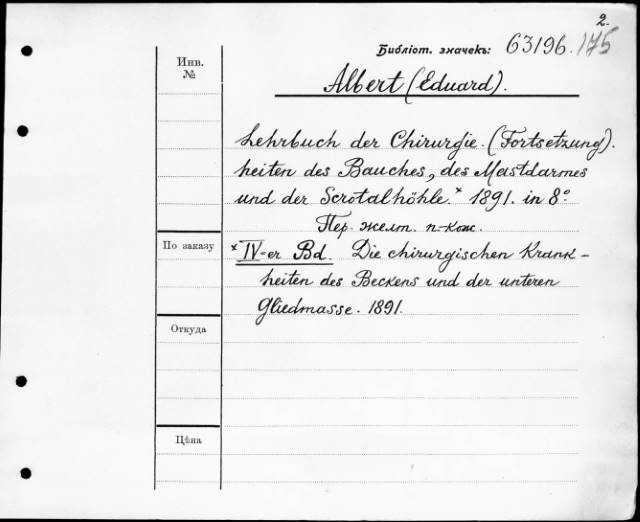 2.
Библіот. значекъ: 63196. 175
Инв.
№
Albert (Eduard).
Lehrbuch der Chirurgie. (Fortsetzung).
heiten des Bauches, des Mastdarmes
und der Scrotalhöhle.* 1891. in 8°.
Пер. желт. п.-кож.
По заказу
* IV-er Bd. Die chirurgischen Krank-
heiten des Beckens und der unteren
Gliedmasse. 1891.
Откуда
Цѣна